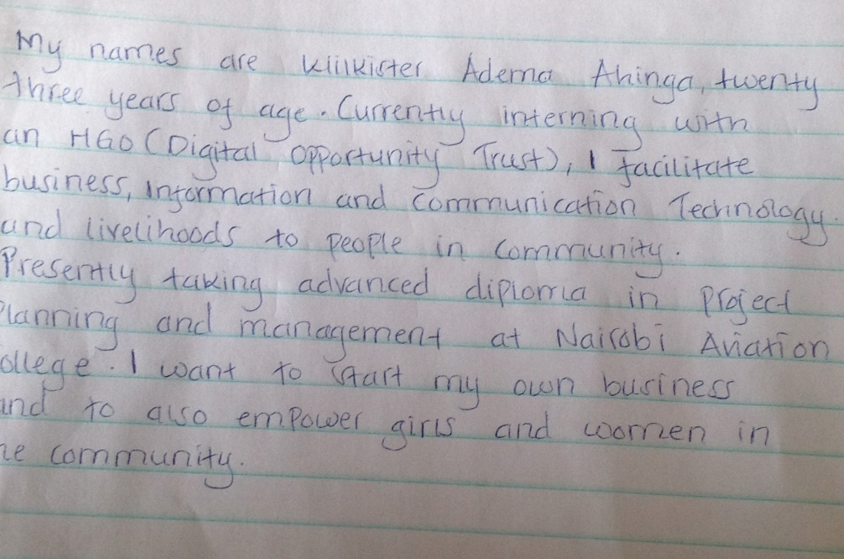 My names are Klilkister Adema Ahinga, twenty
three years of age. Currently interning with
an NGO (Digital Opportunity Trust), I facilitate
business, Information and Communication Technology
and livelihoods to people in community.
Presently taking advanced diploma in Project
Planning and management at Nairobi Aviation
ollege. I want to start my own business
and to also empower girls and women in
he community.